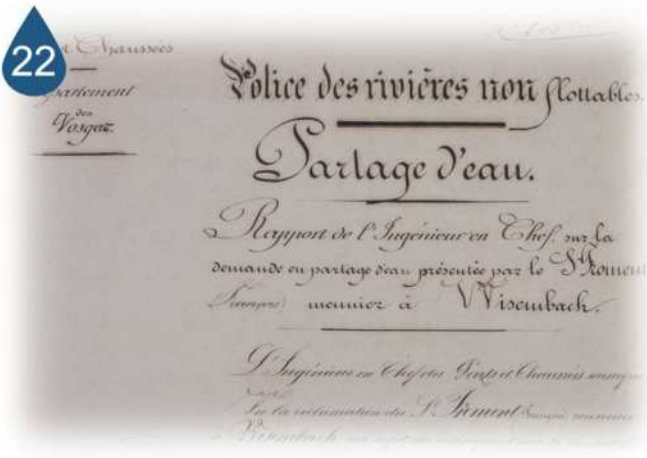 22
Chaussées
partement
des
Vosges.
Police des rivières non flottables.
Partage d'eau.
Rapport de l'Ingénieur en Chef, sur la
demande en partage d'eau présentée par le Sr Froment
(François) meunier à Wisembach.
L'Ingénieur en Chef des Ponts et Chaussées soussigné
Sur la réclamation du Sr Froment (François) meunier
à Wisembach